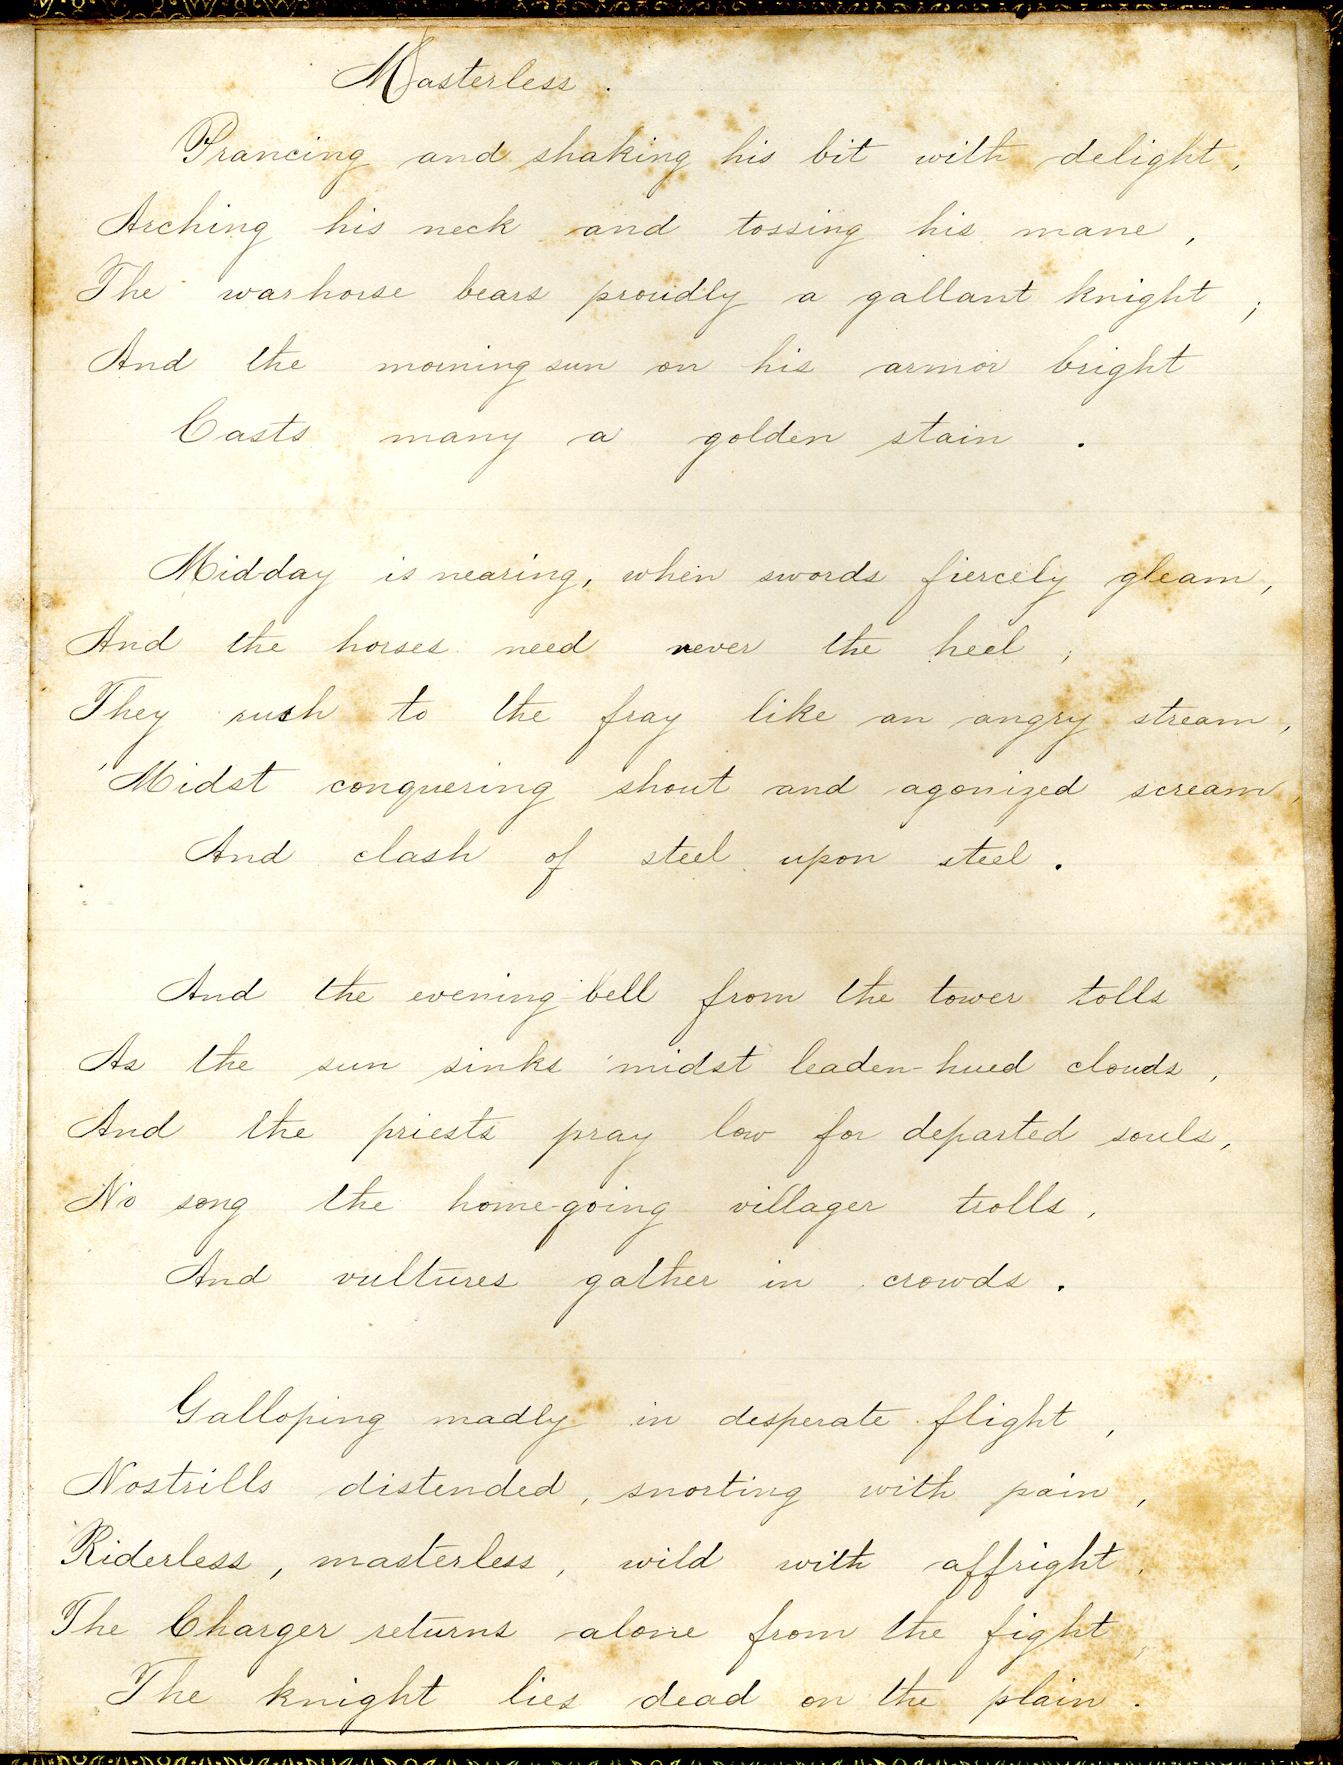 Masterless.
Prancing and shaking his bit with delight,
Arching his neck and tossing his mane,
The warhorse bears proudly a gallant knight;
And the morning sun on his armor bright
Casts many a golden stain.
Midday is nearing, when swords fiercely gleam,
And the horses need never the heel;
They rush to the fray like an angry stream,
'Midst conquering shout and agonized scream,
And clash of steel upon steel.
And the evening-bell from the tower tolls
As the sun sinks 'midst leaden-hued clouds,
And the priests pray low for departed souls,
No song the home-going villager trolls,
And vultures gather in crowds.
Galloping madly in desperate flight,
Nostrills distended, snorting with pain,
Riderless, masterless, wild with affright,
The Charger returns alone from the fight,
The knight lies dead on the plain.